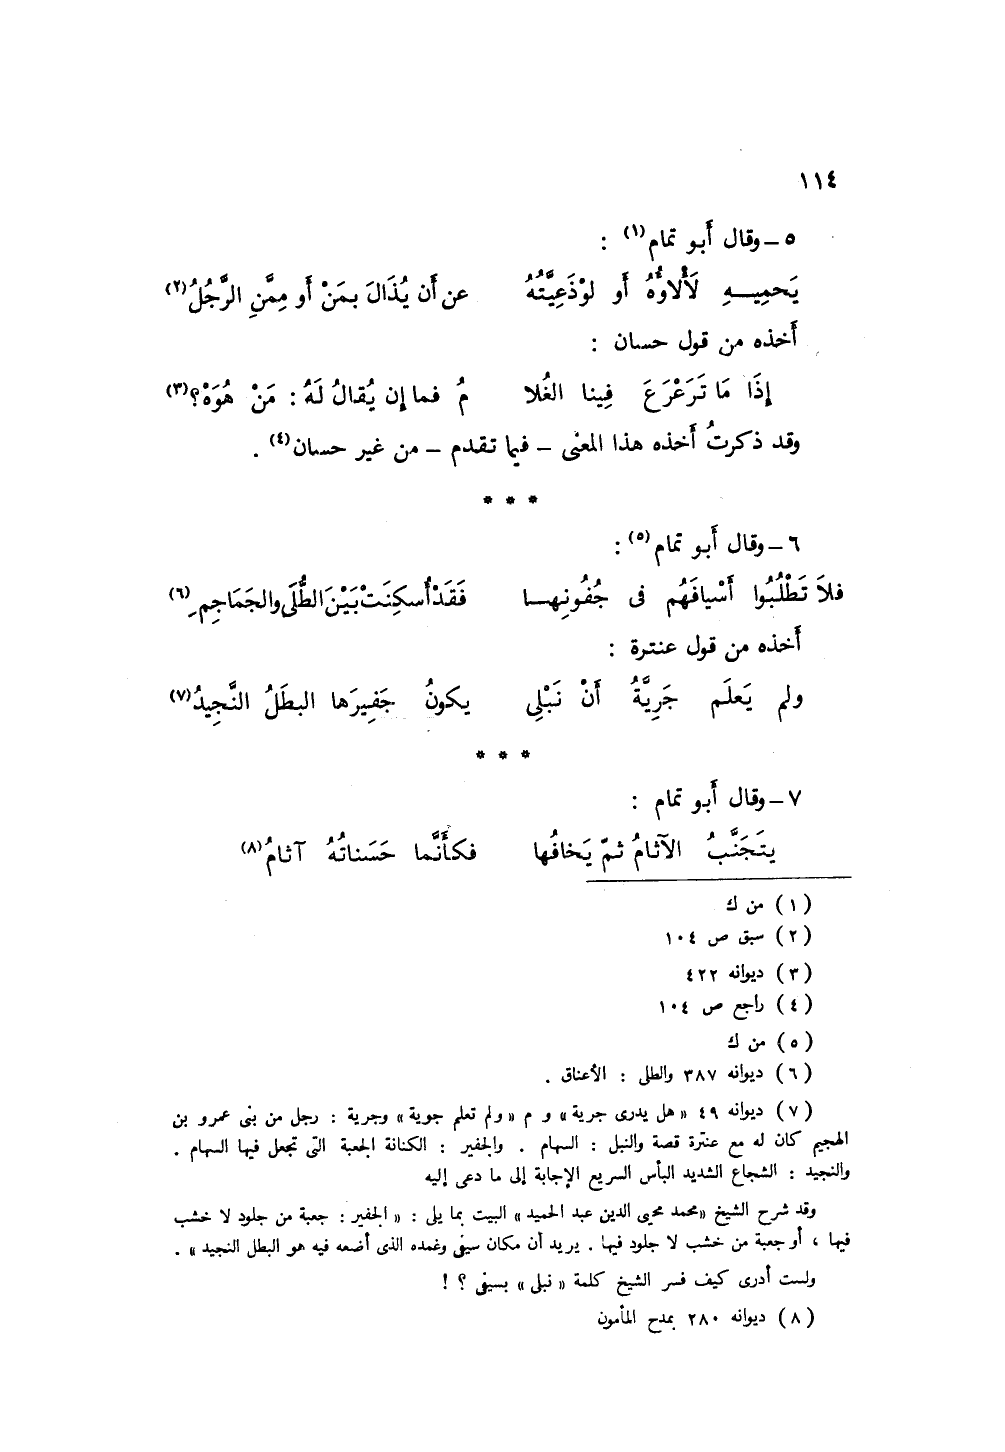 ١١٤
٥ – وقال أبو تمام (١) :
يَحمِيـــهِ لَأْلَاؤُهُ أو لَوْذَعِيَّتُهُ عن أن يُذَالَ بمَنْ أو مِمَّنِ الرَّجُلُ (٢)
أخذه من قول حسان :
إذَا مَا تَرَعْرَعَ فِينا الغُلا مُ فما إن يُقالُ لَهُ : مَنْ هُوَهْ؟ (٣)
وقد ذكرتُ أخذه هذا المعنى – فيما تقدم – من غير حسان (٤) .
* * *
٦ – وقال أبو تمام (٥) :
فلاَ تَطْلُبُوا أَسْيافَهُم فى جُفُونِهــا فَقَدْ أُسكِنَتْ بَيْنَ الطُّلَى والجَمَاجِمِ (٦)
أخذه من قول عنترة :
ولم يَعلَم جَرِيَّةُ أنْ نَبْلِى يكونُ جَفِيرَها البطَلُ النَّجِيدُ (٧)
* * *
٧ – وقال أبو تمام :
يتَجَنَّبُ الآثامُ ثمّ يَخافُها فكأَنَّما حَسَناتُهُ آثامُ (٨)
(١) من ك
(٢) سبق ص ١٠٤
(٣) ديوانه ٤٢٢
(٤) راجع ص ١٠٤
(٥) من ك
(٦) ديوانه ٣٨٧ والطلى : الأعناق .
(٧) ديوانه ٤٩ «هل يدرى جرية» و م «ولم تعلم جوية» وجرية : رجل من بنى عمرو بن
الهجيم كان له مع عنترة قصة والنبل : السهام . والجفير : الكنانة الجعبة التى تجعل فيها السهام .
والنجيد : الشجاع الشديد البأس السريع الإجابة إلى ما دعى إليه
وقد شرح الشيخ «محمد محيى الدين عبد الحميد» البيت بما يلى : «الجفير : جعبة من جلود لا خشب
فيها ، أو جعبة من خشب لا جلود فيها . يريد أن مكان سيفى وغمده الذى أضعه فيه هو البطل النجيد» .
ولست أدرى كيف فسر الشيخ كلمة «نبلى» بسيفى ؟ !
(٨) ديوانه ٢٨٠ يمدح المأمون